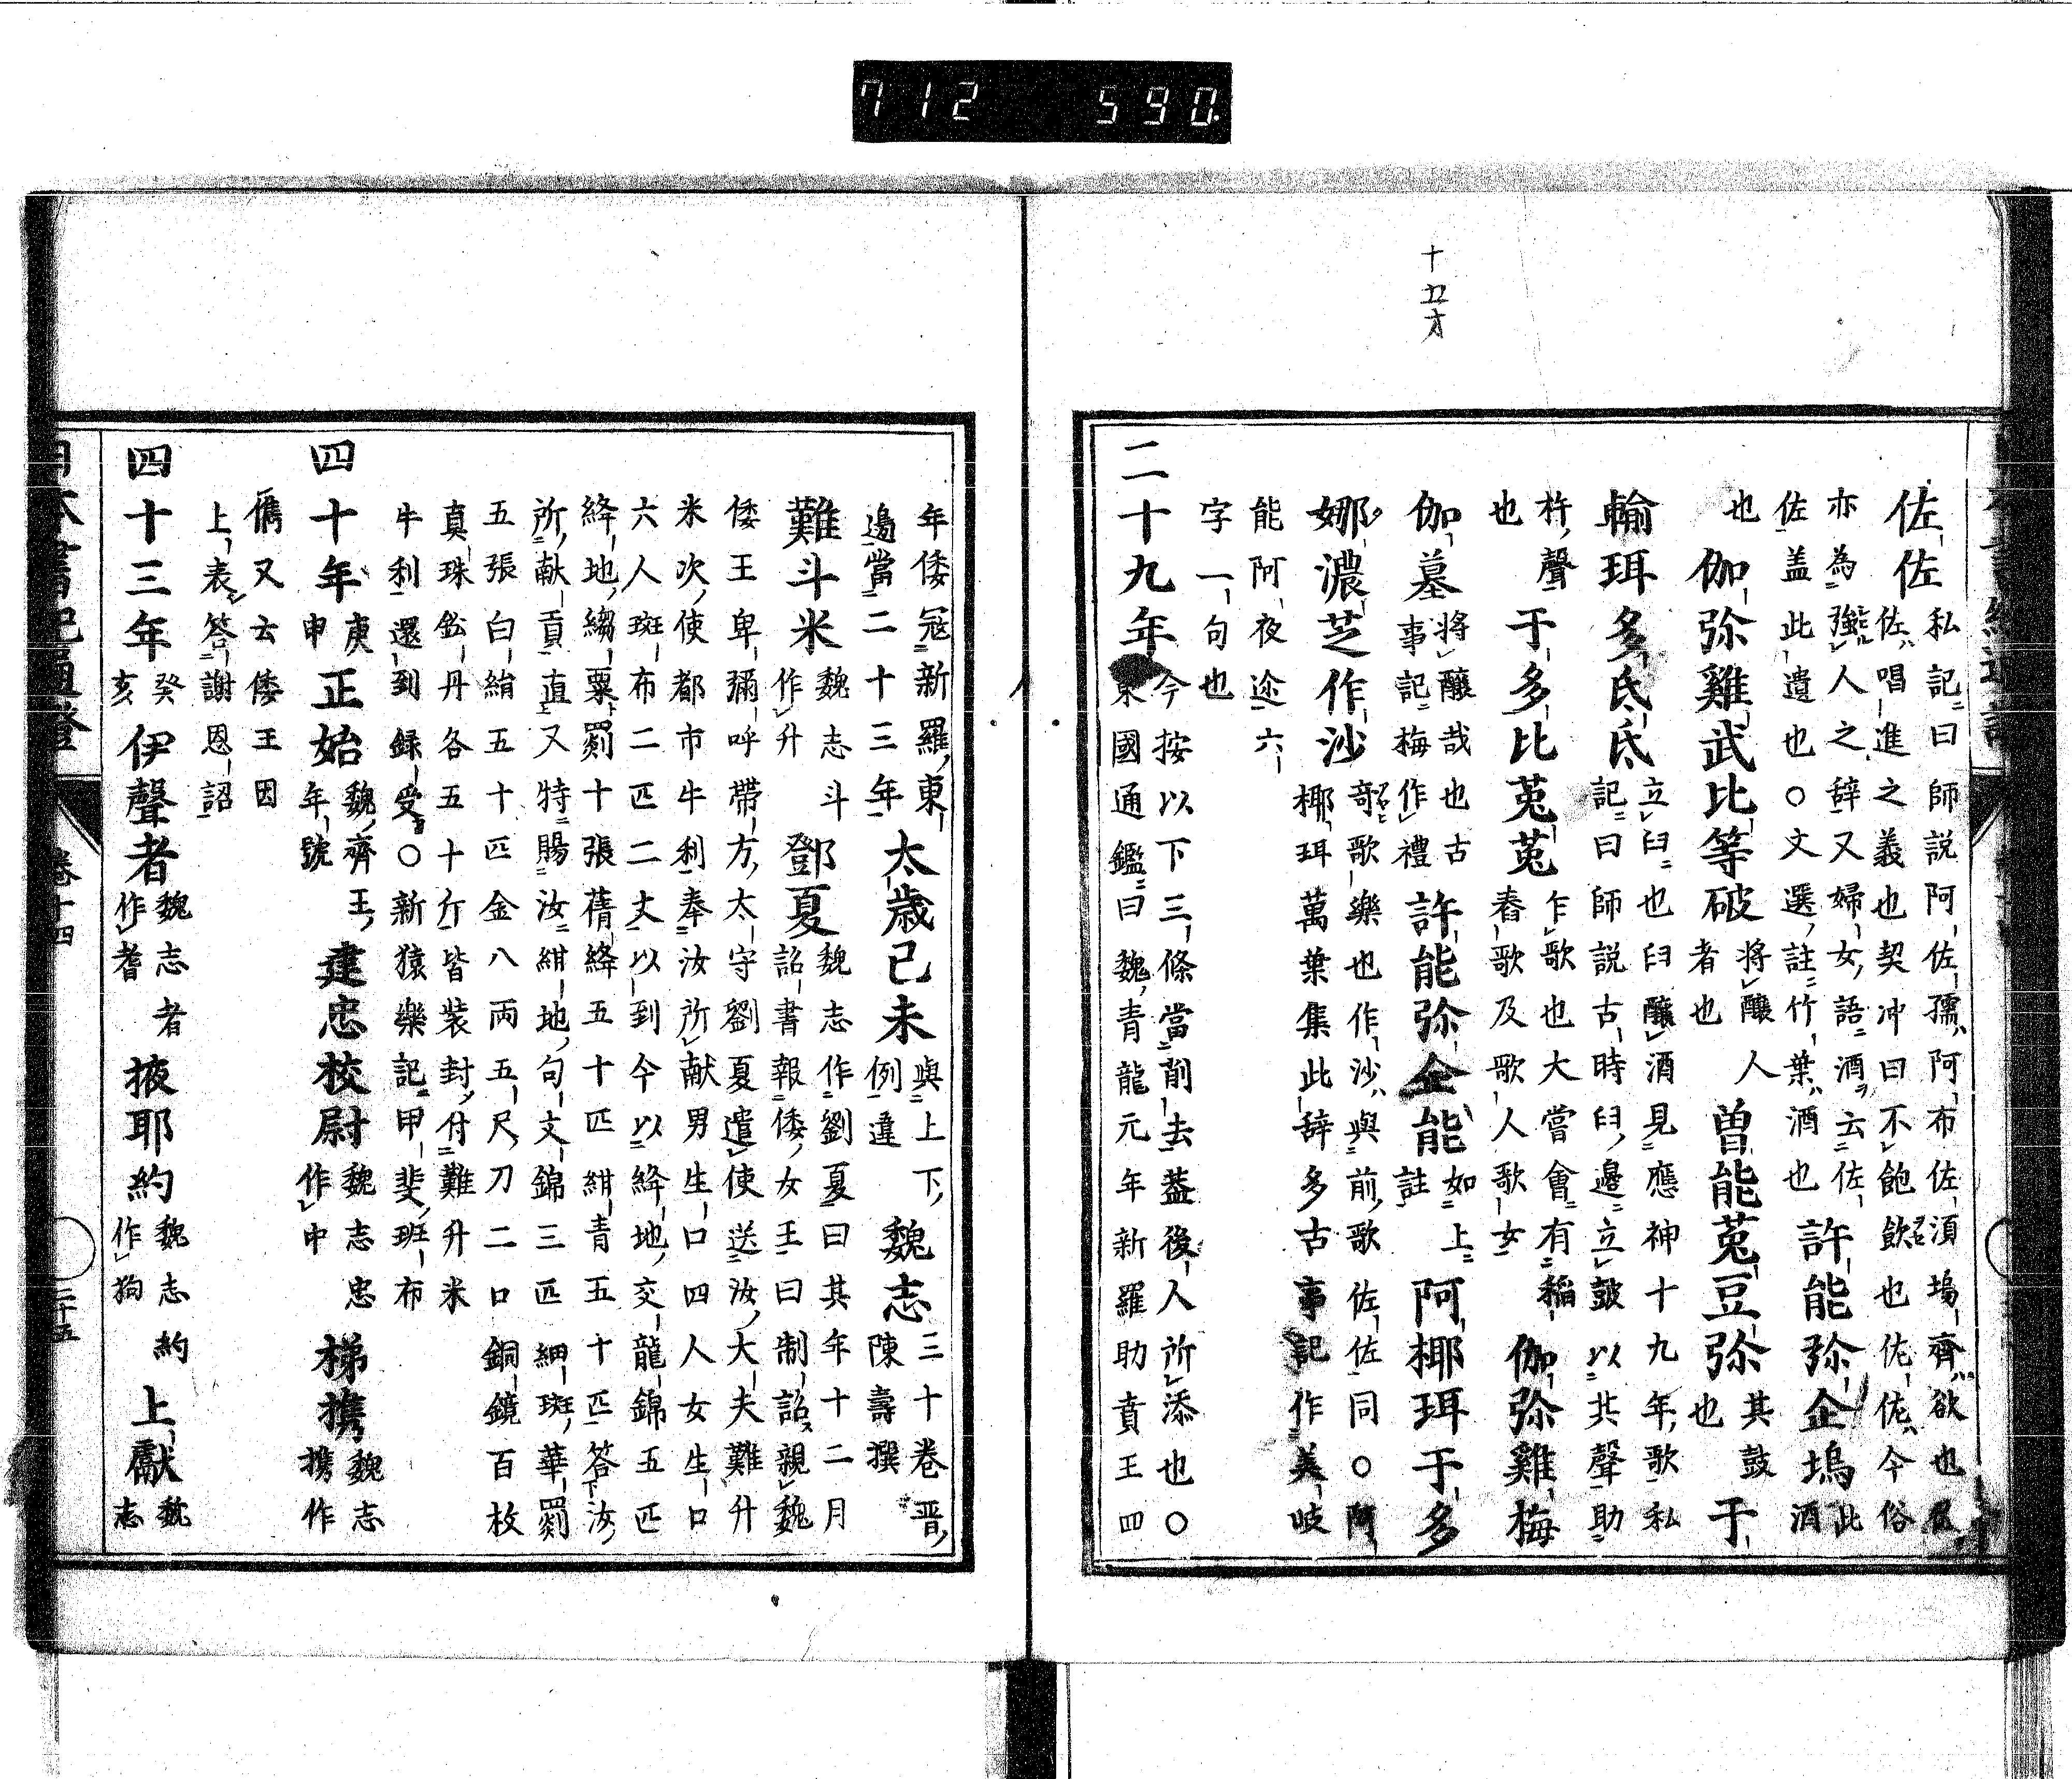 712 590
十四オ
佐佐
私記曰師說阿佐孺阿布佐須塢齊欲也
佐唱進之義也契冲曰不飽飲也佐佐今俗
亦為強人之辞又婦女語酒云佐
佐盖此遺也○文選註竹葉酒也
許能弥企塢
此酒
也
伽弥雞武比等破
將釀人
者也
曽能菟豆弥
其鼓
也
于
輸珥多氐氐
立臼也臼釀酒見應神十九年歌私
記曰師說古時臼邊立鼓以共聲助
杵聲
也
于多比菟菟
乍歌也大嘗會有稲
舂歌及歌人歌女
伽弥雞梅
伽墓
將釀哉也古
事記梅作禮
許能弥企能
如上
註
阿椰珥于多
娜濃芝作沙
奇歌樂也作沙與前歌佐佐同○阿
椰珥萬葉集此辞多古事記作美岐
能阿夜迩六
字一句也
二十九年
今按以下三條當削去葢後人所添也○
東國通鑑曰魏青龍元年新羅助賁王四
年倭冦新羅東
邉當二十三年
太歳己未
與上下
例違
魏志
三十卷晋
陳壽撰
難斗米
魏志斗
作升
鄧夏
魏志作劉夏曰其年十二月
詔書報倭女王曰制詔親魏
倭王卑彌呼帶方太守劉夏遣使送汝大夫難升
米次使都市牛利奉汝所献男生口四人女生口
六人班布二匹二丈以到今以絳地交龍錦五匹
絳地縐粟罽十張蒨絳五十匹紺青五十匹答汝
所献貢直又特賜汝紺地句文錦三匹細班華罽
五張白絹五十匹金八兩五尺刀二口銅鏡百枚
真珠鈆丹各五十斤皆装封付難升米
牛利還到録受○新猿樂記甲斐班布
四十年
庚
申
正始
魏齊王
年號
建忠校尉
魏志忠
作中
梯携
魏志
携作
儁又云倭王因
上表答謝恩詔
四十三年
癸
亥
伊聲者
魏志者
作耆
掖耶約
魏志約
作狗
上獻
魏
志
日本書紀通證
卷十四
三十五